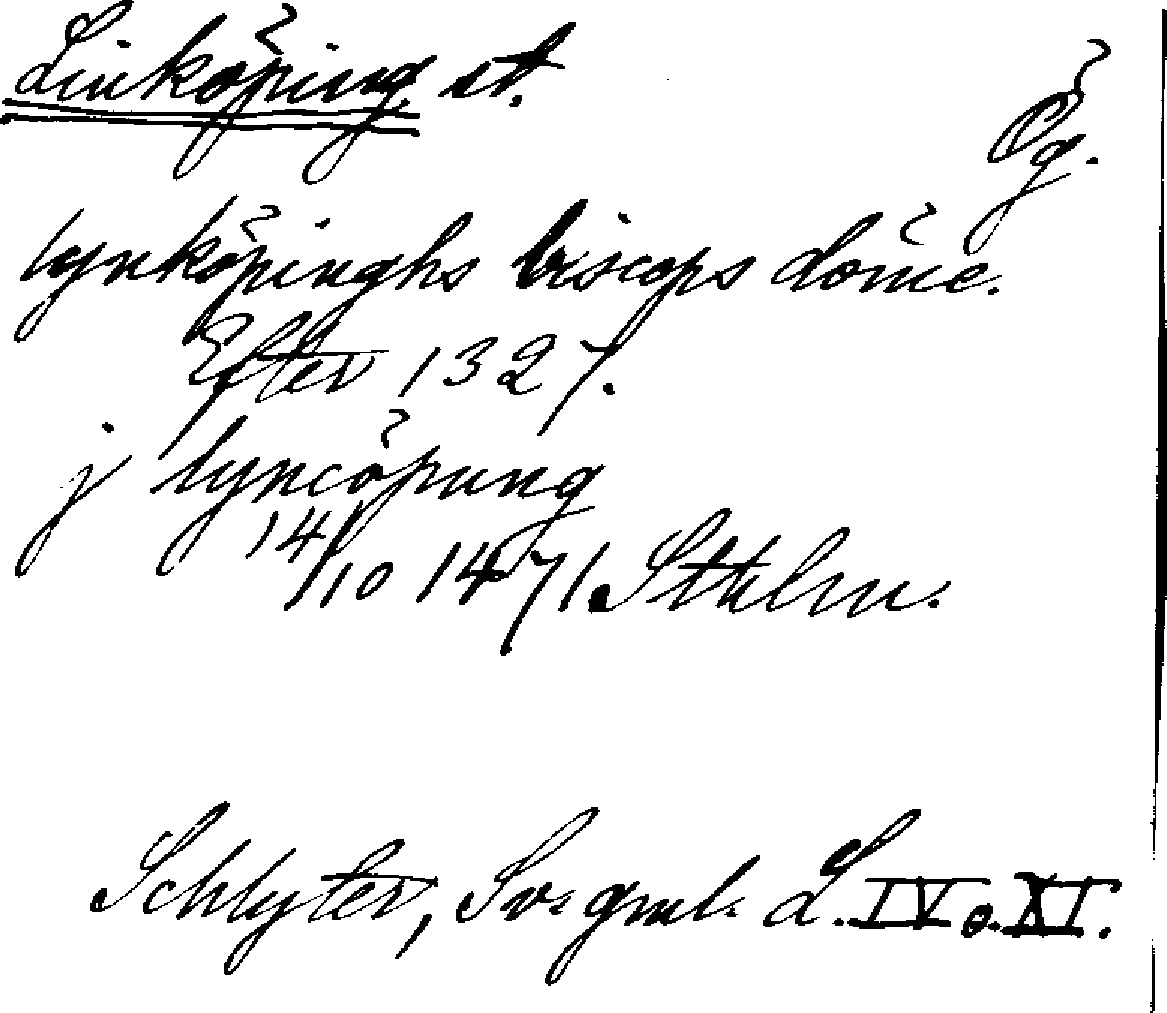 Linköping st.
Ög.
lynköpinghs biscops döme.
Efter 1327.
j lyncöpung
14/10 1471. Sthlm.
Schlyter, Sv. gml. L. IV o. XI.